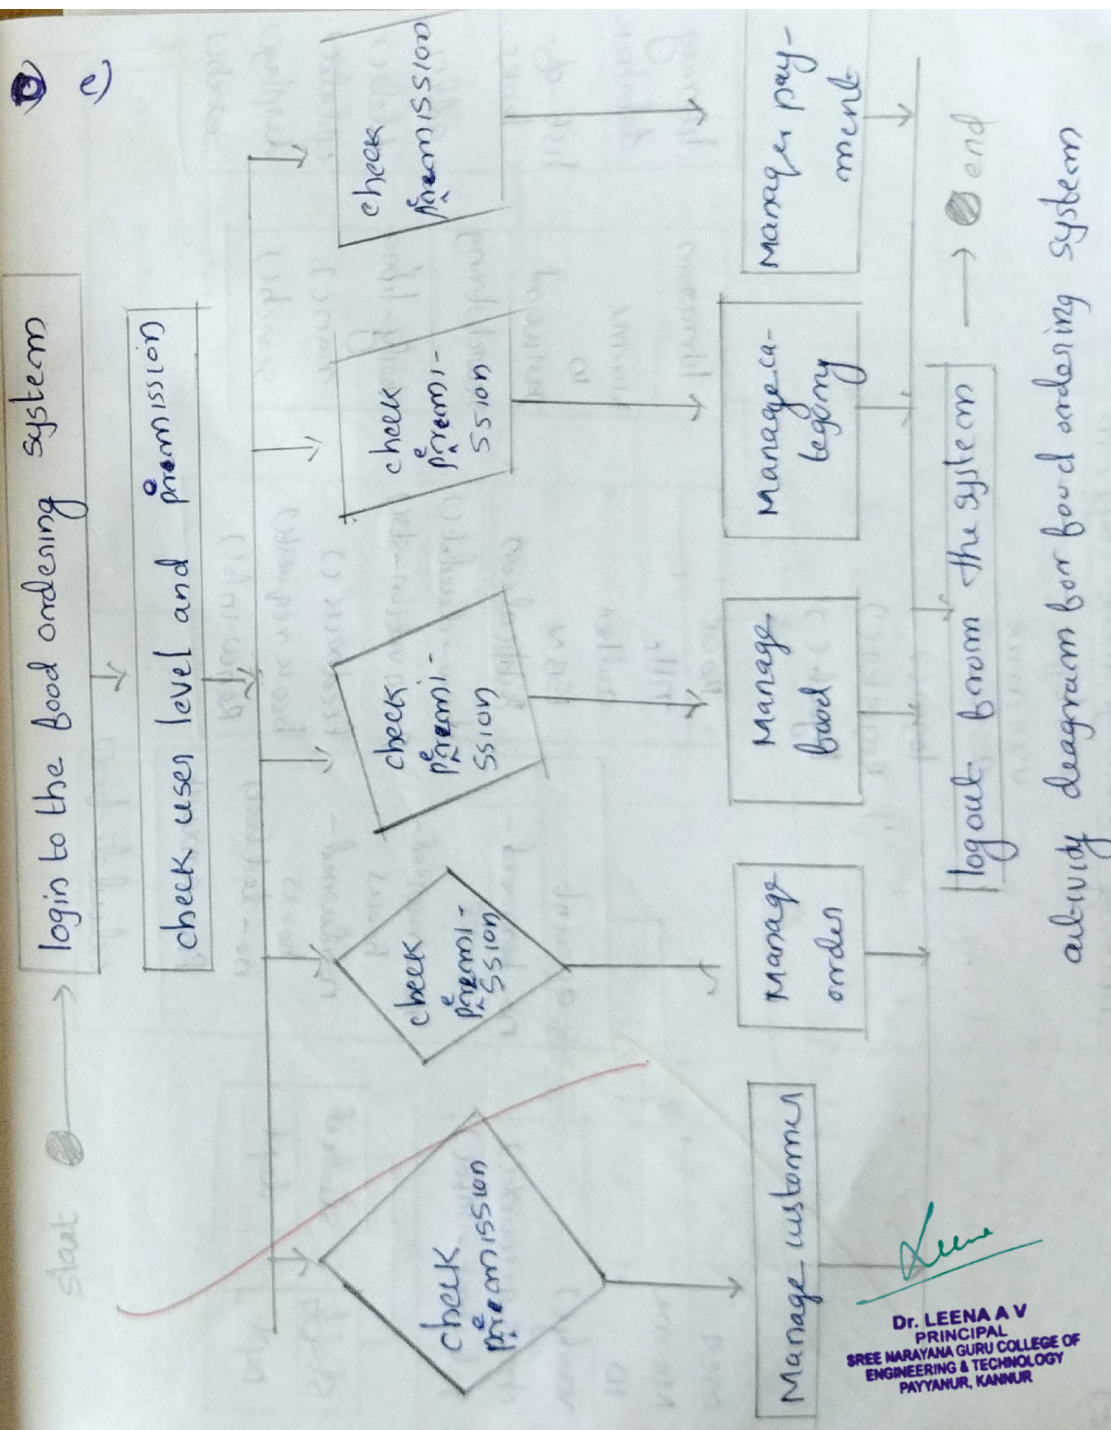 e)
start
login to the food ordering system
check user level and permission
check
permission
check
permi-
ssion
check
permi-
ssion
check
permi-
ssion
check
permission
Manage customer
Manage
order
Manage
food
Manage ca-
tegory
Manager pay-
ment
logout from the system
end
activity deagram for food ordering system
Leena
Dr. LEENA A V
PRINCIPAL
SREE NARAYANA GURU COLLEGE OF
ENGINEERING & TECHNOLOGY
PAYYANUR, KANNUR